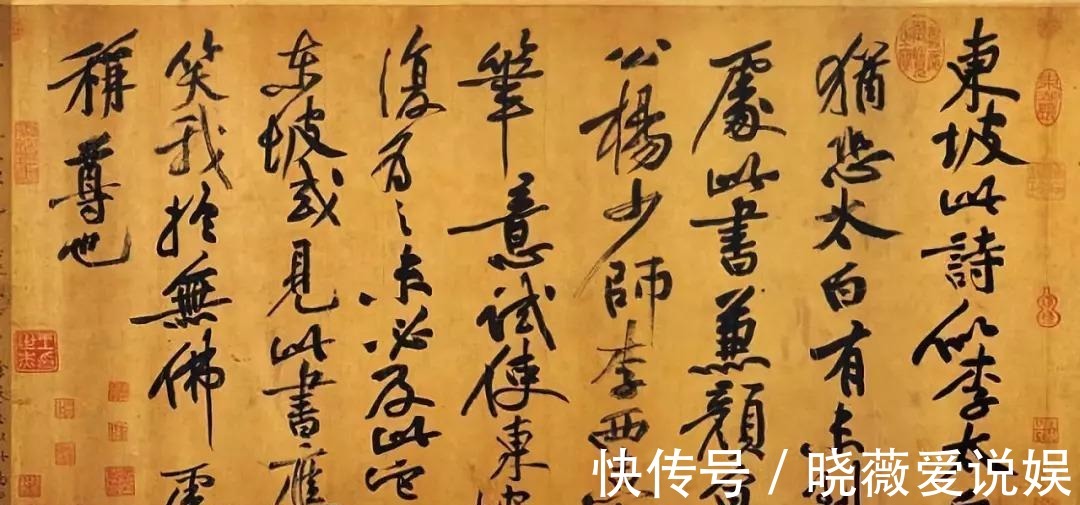 東坡此詩似李太
猶恐太白有未到
處此書兼顏
公楊少師李西
筆意試使東坡
復為之未必及此它
東坡或見此書應
笑我於無佛處
稱尊也
快传号 / 晓薇爱说娱